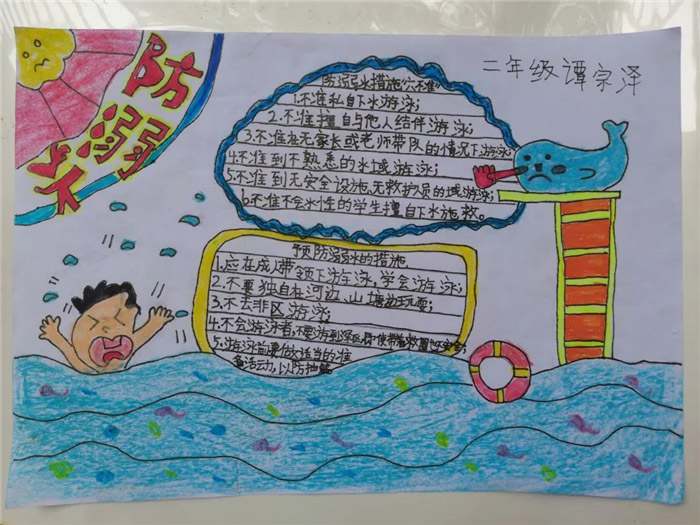 防溺水
二年级谭宗泽
防溺水措施“六不准”
1.不准私自下水游泳;
2.不准擅自与他人结伴游泳;
3.不准在无家长或老师带队的情况下游泳;
4.不准到不熟悉的水域游泳;
5.不准到无安全设施、无救护员的域游泳;
6.不准不会水性的学生擅自下水施救。
预防溺水的措施
1.应在成人带领下游泳,学会游泳;
2.不要独自在河边、山塘边玩耍;
3.不去非区游泳;
4.不会游泳者,不要游到深区,即使带着救圈也不安全;
5.游泳前要做适当的准
备活动,以防抽筋